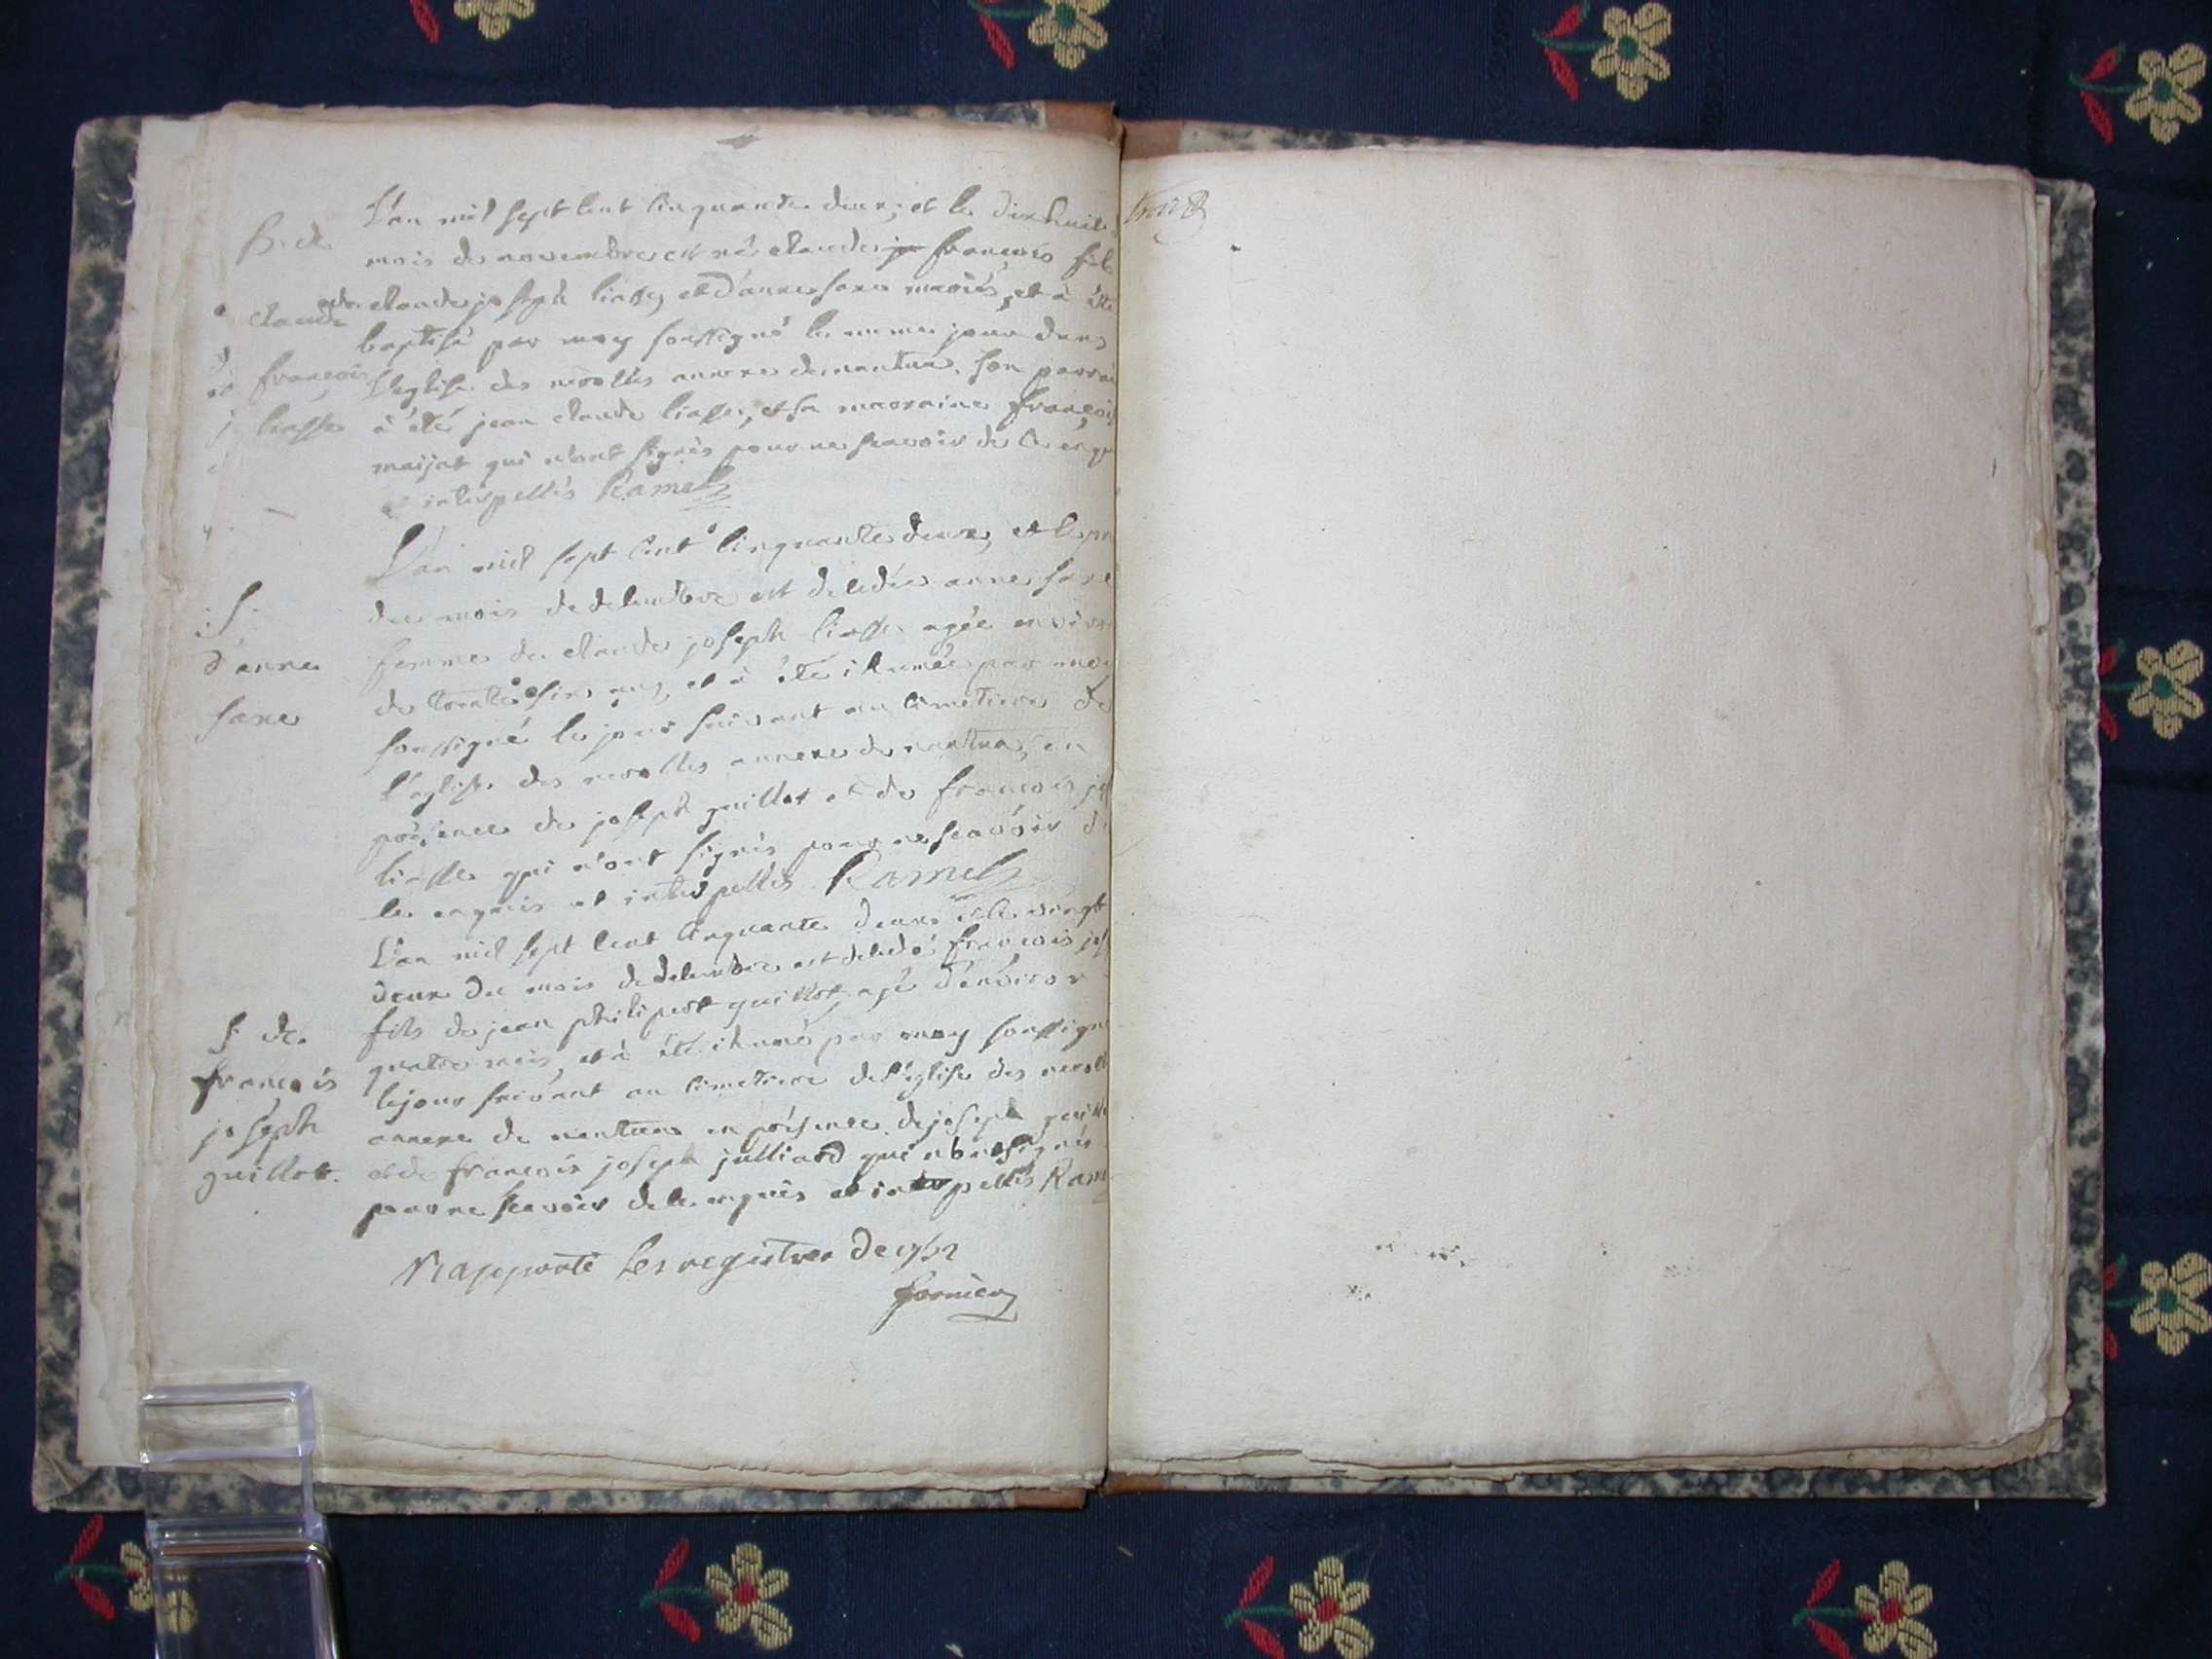 B. de
claude
françois
liasse
L'an mil sept cent cinquante deux, et le dixhuit
mois de novembre est né claude françois fils
de claude joseph liasse, et d'anne saxe mariés, et à été
baptisé par moy soussigné le meme jour dans
l'eglise des nerolles annexe de nantua. son parrai
à été jean claude liasse, et sa marraine françois
maijat qui n'ont signés pour ne scavoir de ce enqu
et interpellés Ramel
:S.
d'anne
saxe
L'an mil sept cent cinquante deux, et le pr
du mois de decembre est decedée anne saxe
femme de claude joseph liasse agée environ
de trente six ans, et à été ihumée par moy
soussigné le jour suivant au cimetiere de
l'eglise des nerolles annexe de nantua, en
présence de joseph guillot et de francois jos
liasse qui n'ont signés pour ne scavoir de
ce enquis et interpellés Ramel
S. de
françois
joseph
guillot.
L'an mil sept cent cinquante deux et le vingt
deux du mois de decembre est decedé françois jos
fils de jean philipert guillot, agé d'environ
quatre mois, et à été ihumé par moy soussigné
le jour suivant au cimetiere de l'eglise des neroll
annexe de nantua en présence de joseph guillo
et de françois joseph julliard qui n'ont signés
pour ne scavoir de ce enquis et interpellés Rame
Rapporté les registres de 1752